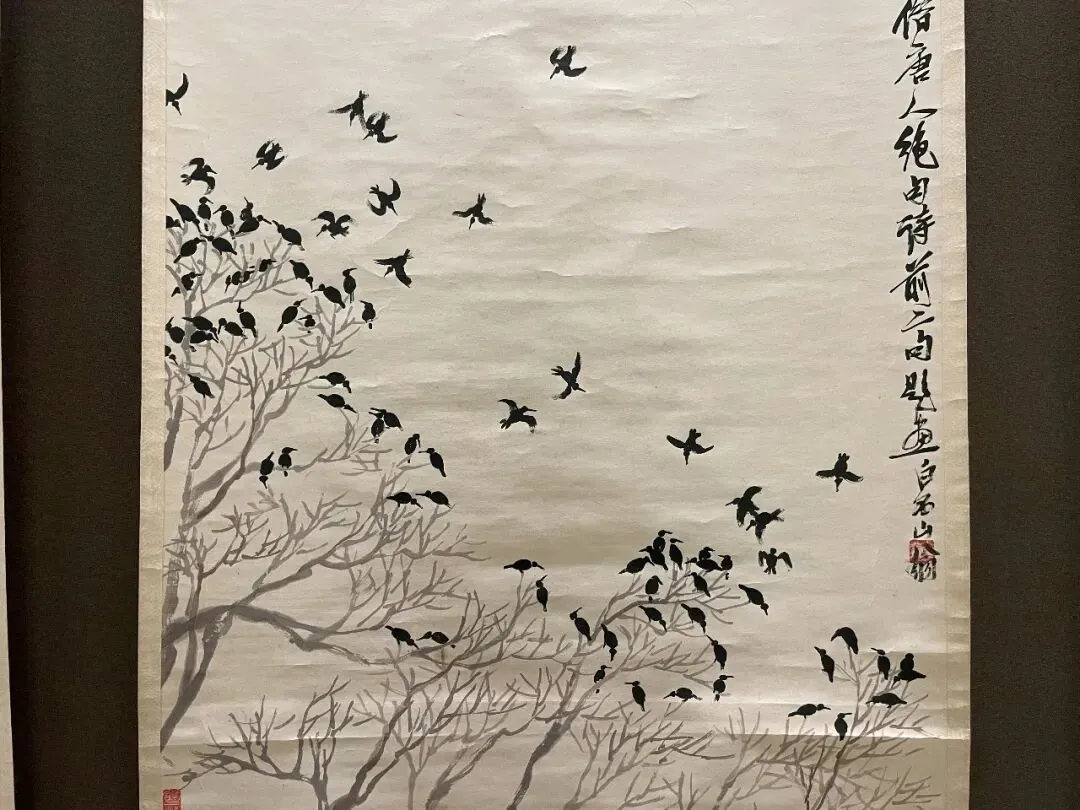 借唐人绝句诗前二句题画白石山翁